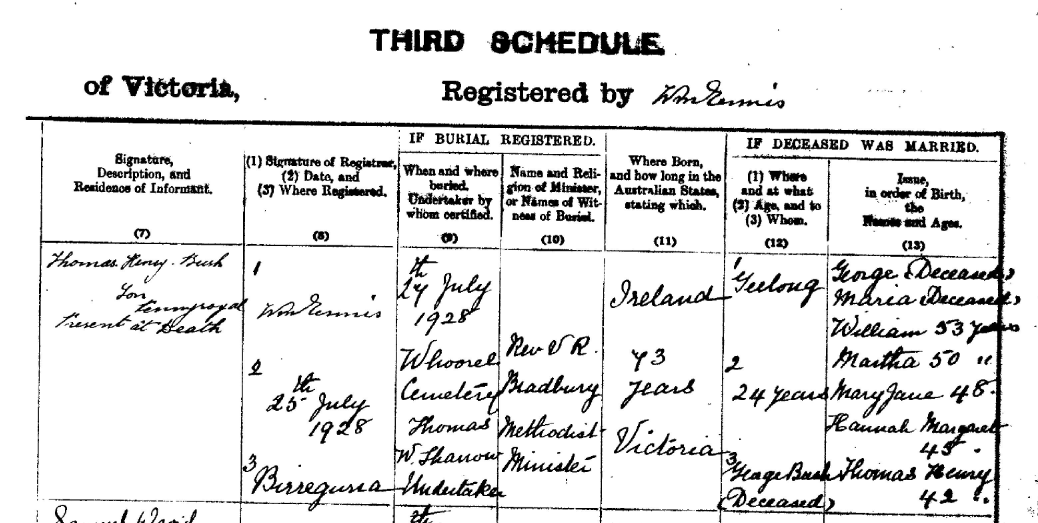 THIRD SCHEDULE
of Victoria,
Registered by Wm Ennis
IF BURIAL REGISTERED.
IF DECEASED WAS MARRIED.
Signature,
Description, and
Residence of Informant.
(7)
(1) Signature of Registrar,
(2) Date, and
(3) Where Registered.
(8)
When and where
buried.
Undertaker by
whom certified.
(9)
Name and Reli-
gion of Minister,
or Names of Wit-
ness of Burial.
(10)
Where Born,
and how long in the
Australian States,
stating which.
(11)
(1) Where
and at what
(2) Age, and to
(3) Whom.
(12)
Issue,
in order of Birth,
the
Names and Ages.
(13)
Thomas Henry Bush
Son
Pennyroyal
Present at Death
1
Wm Ennis
2
25th July
1928
3
Birregurra
27th July
1928
Whoorel
Cemetery
Thomas
W. Sharrow
Undertaker
Rev V R.
Bradbury
Methodist
Minister
Ireland
73
years
Victoria
1
Geelong
2
24 years
3
George Bush
(Deceased)
George (Deceased)
Maria (Deceased)
William 53 years
Martha 50 "
Mary Jane 48 "
Hannah Margaret
45 "
Thomas Henry
42 "
Samuel David
th